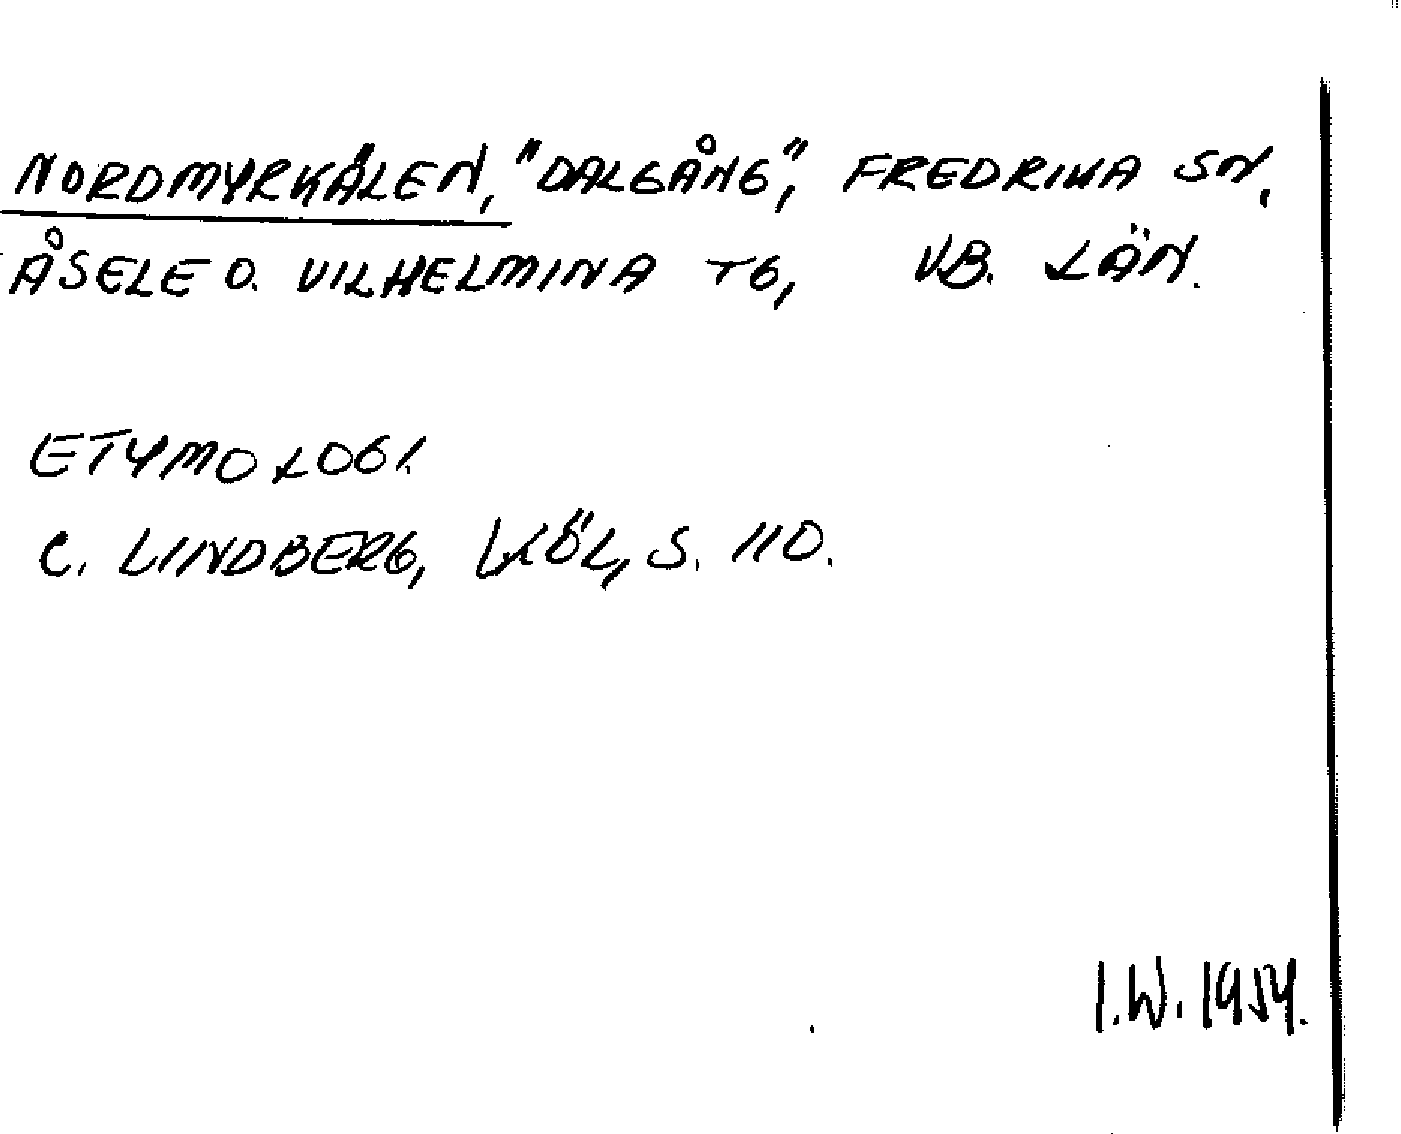 NORDMYRKÅLEN, "DALGÅNG", FREDRIKA SN.
ÅSELE O. VILHELMINA TG, VB. LÄN.
ETYMOLOGI.
C. LINDBERG, KÖL, S. 110.
I.W. 1954.